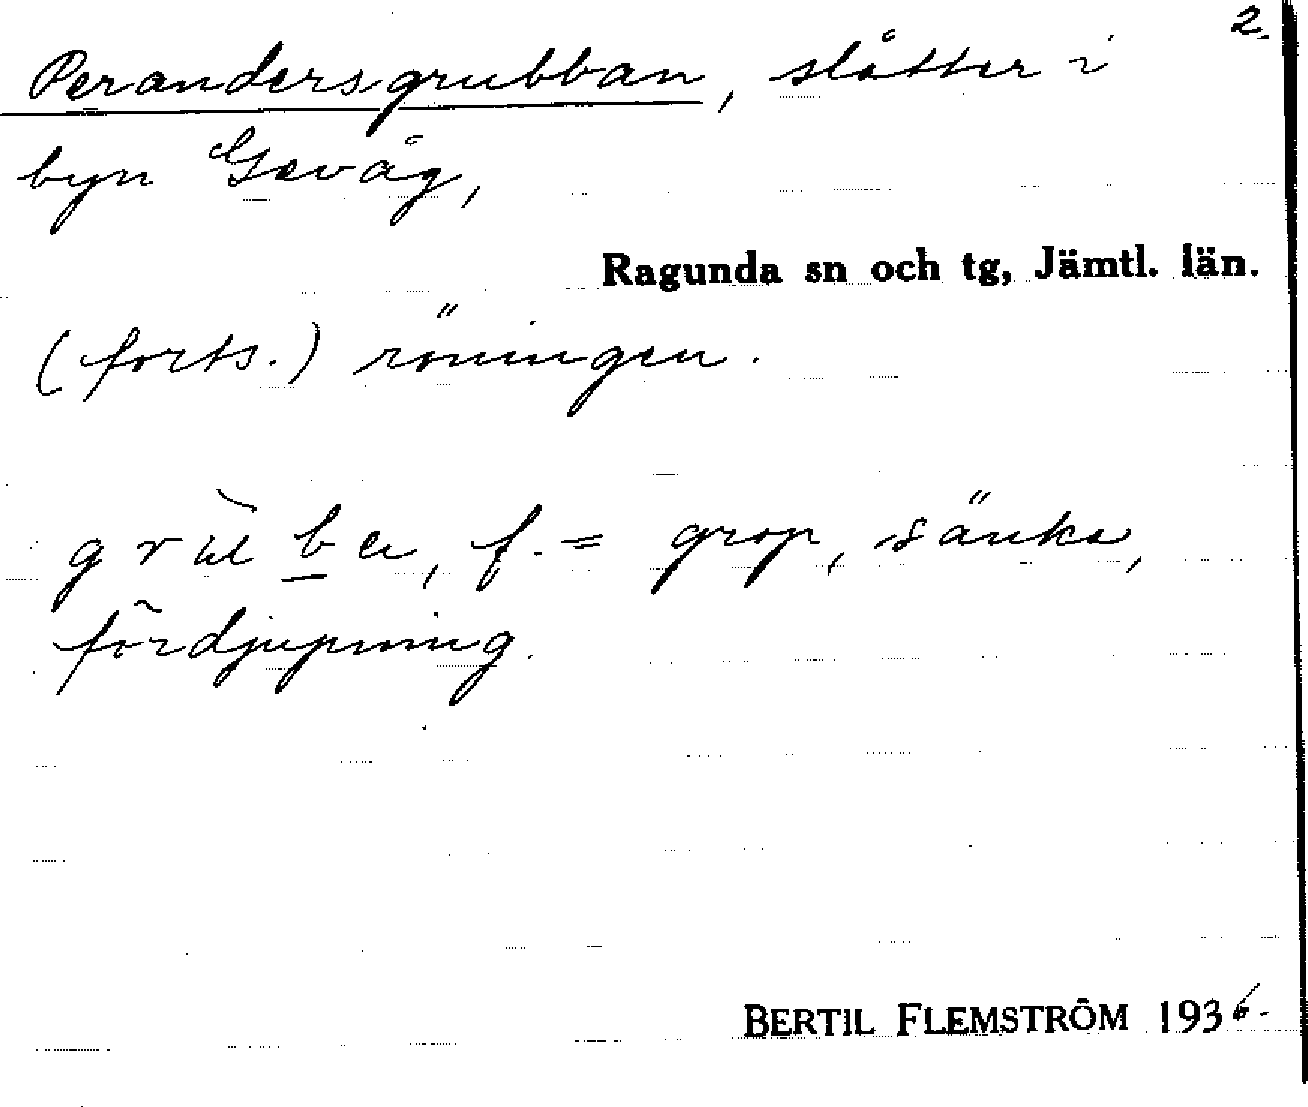 2.
Perandersgrubban, slåtter i
byn Gevåg,
Ragunda sn och tg, Jämtl. län.
(forts.) röningen.
grùb̲a, f. = grop, sänka,
fördjupning.
BERTIL FLEMSTRÖM 1936.